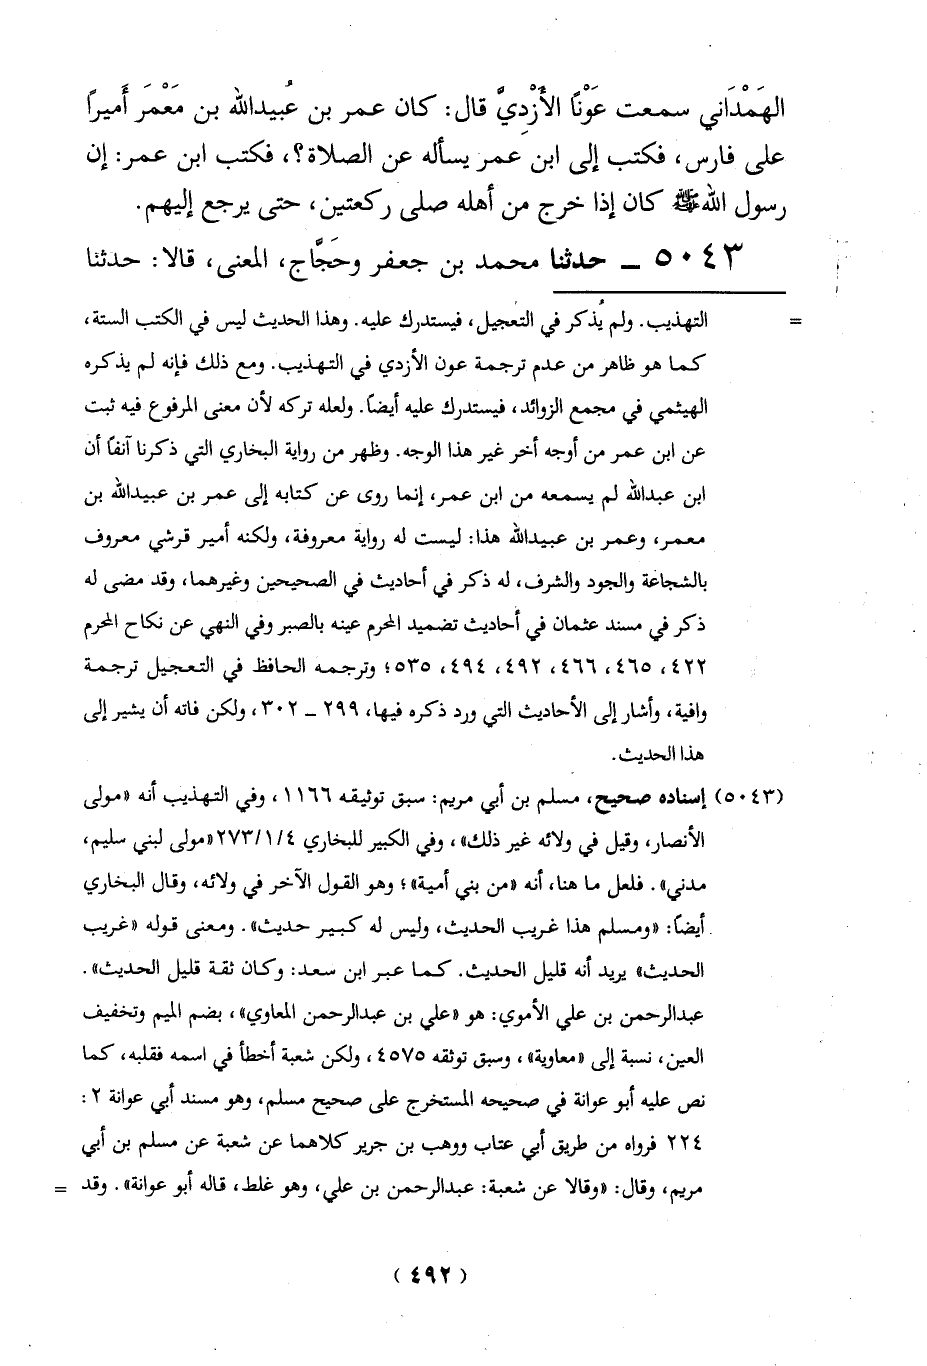 الهَمْدَاني سمعت عَوْنًا الأَزْديَّ قال: كان عمر بن عُبيدالله بن مَعْمَر أَميرًا
على فارس، فكتب إلى ابن عمر يسأله عن الصلاة؟، فكتب ابن عمر: إن
رسول الله ﷺ كان إذا خرج من أهله صلى ركعتين، حتى يرجع إليهم.
٥٠٤٣ ــ حدثنا محمد بن جعفر وحَجَّاج، المعنى، قالا: حدثنا
= التهذيب. ولم يُذكر في التعجيل، فيستدرك عليه. وهذا الحديث ليس في الكتب الستة،
كما هو ظاهر من عدم ترجمة عون الأزدي في التهذيب. ومع ذلك فإنه لم يذكره
الهيثمي في مجمع الزوائد، فيستدرك عليه أيضًا. ولعله تركه لأن معنى المرفوع فيه ثبت
عن ابن عمر من أوجه أخر غير هذا الوجه. وظهر من رواية البخاري التي ذكرنا آنفًا أن
ابن عبدالله لم يسمعه من ابن عمر، إنما روى عن كتابه إلى عمر بن عبيدالله بن
معمر، وعمر بن عبيدالله هذا: ليست له رواية معروفة، ولكنه أمير قرشي معروف
بالشجاعة والجود والشرف، له ذكر في أحاديث في الصحيحين وغيرهما، وقد مضى له
ذكر في مسند عثمان في أحاديث تضميد المحرم عينه بالصبر وفي النهي عن نكاح المحرم
٤٢٢، ٤٦٥، ٤٦٦، ٤٩٢، ٤٩٤، ٥٣٥؛ وترجمه الحافظ في التعجيل ترجمة
وافية، وأشار إلى الأحاديث التي ورد ذكره فيها، ٢٩٩ ــ ٣٠٢، ولكن فاته أن يشير إلى
هذا الحديث.
(٥٠٤٣) إسناده صحيح، مسلم بن أبي مريم: سبق توثيقه ١١٦٦، وفي التهذيب أنه «مولى
الأنصار، وقيل في ولائه غير ذلك»، وفي الكبير للبخاري ٢٧٣/١/٤ «مولى لبني سليم،
مدني». فلعل ما هنا، أنه «من بني أمية»؛ وهو القول الآخر في ولائه، وقال البخاري
أيضًا: «ومسلم هذا غريب الحديث، وليس له كبير حديث». ومعنى قوله «غريب
الحديث» يريد أنه قليل الحديث. كما عبر ابن سعد: وكان ثقة قليل الحديث».
عبدالرحمن بن علي الأموي: هو «علي بن عبدالرحمن المعاوي»، بضم الميم وتخفيف
العين، نسبة إلى «معاوية»، وسبق توثقه ٤٥٧٥، ولكن شعبة أخطأ في اسمه فقلبه، كما
نص عليه أبو عوانة في صحيحه المستخرج على صحيح مسلم، وهو مسند أبي عوانة ٢:
٢٢٤ فرواه من طريق أبي عتاب ووهب بن جرير كلاهما عن شعبة عن مسلم بن أبي
مريم، وقال: «وقالا عن شعبة: عبدالرحمن بن علي، وهو غلط، قاله أبو عوانة». وقد =
(٤٩٢)